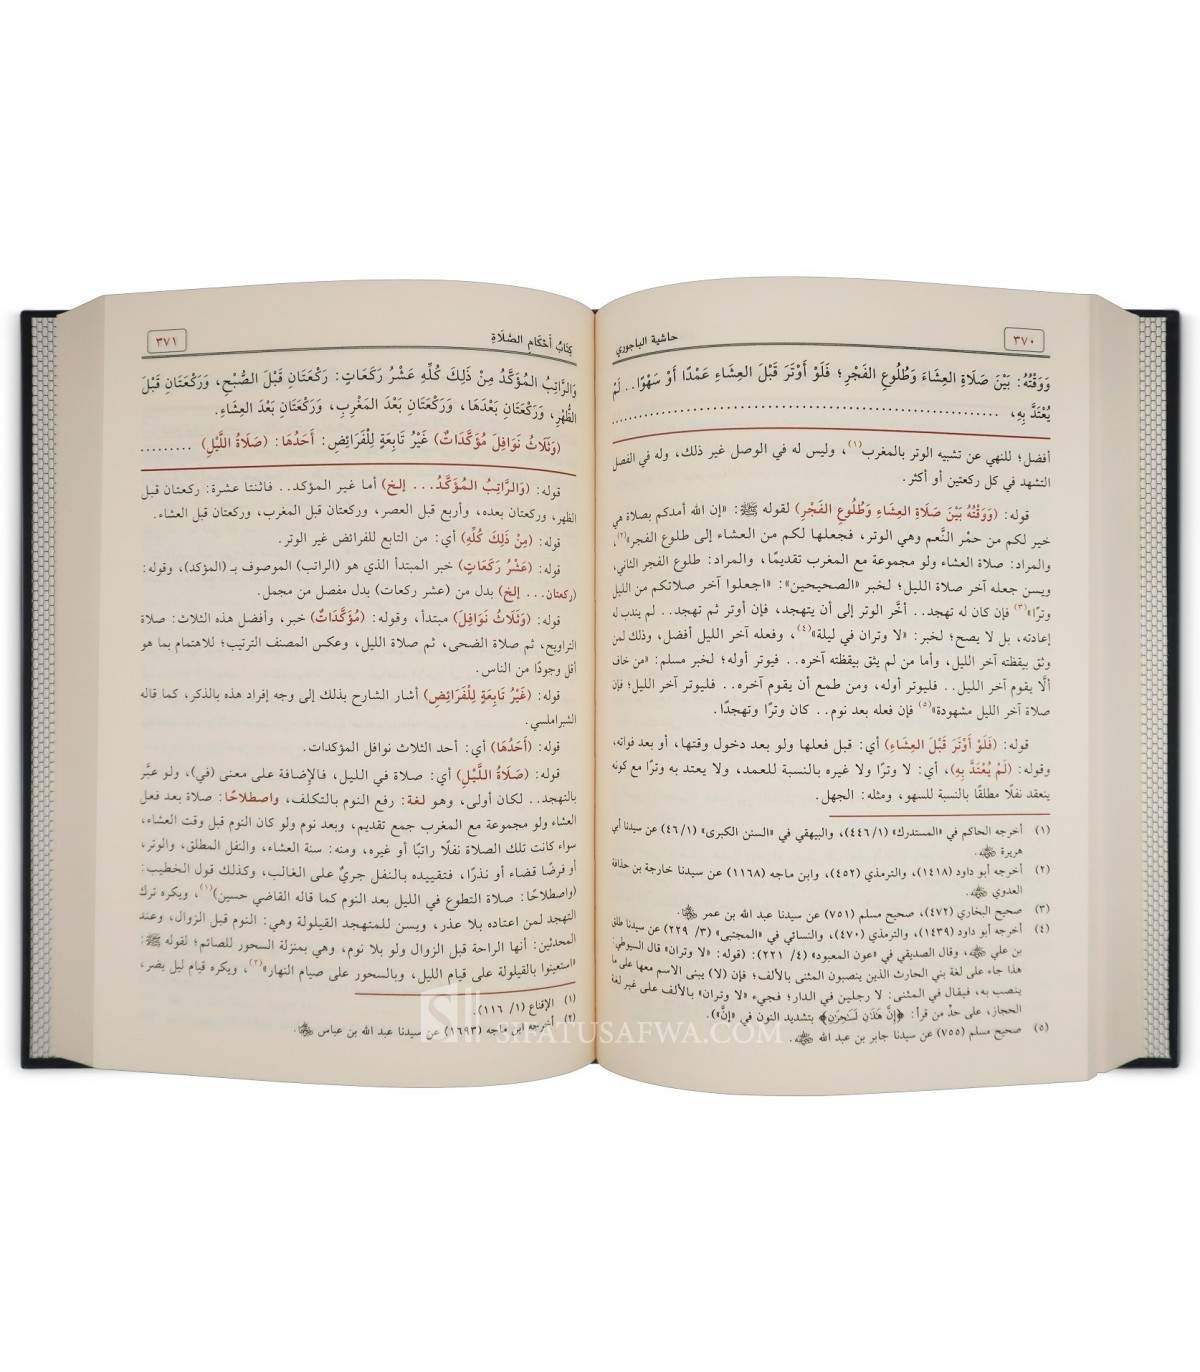 حاشية الباجوري
٣٧٠
وَوَقْتُهُ: بَيْنَ صَلَاةِ العِشَاءِ وَطُلُوعِ الفَجْرِ؛ فَلَوْ أَوْتَرَ قَبْلَ العِشَاءِ عَمْدًا أَوْ سَهْوًا.. لَمْ
يُعْتَدَّ بِهِ، ..........................................................
أفضل؛ للنهي عن تشبيه الوتر بالمغرب(١)، وليس له في الوصل غير ذلك، وله في الفصل
التشهد في كل ركعتين أو أكثر.
قوله: (وَوَقْتُهُ بَيْنَ صَلَاةِ العِشَاءِ وَطُلُوعِ الفَجْرِ) لقوله ﷺ: «إن الله أمدكم بصلاة هي
خير لكم من حمْر النَّعم وهي الوتر، فجعلها لكم من العشاء إلى طلوع الفجر»(٢)،
والمراد: صلاة العشاء ولو مجموعة مع المغرب تقديمًا، والمراد: طلوع الفجر الثاني،
ويسن جعله آخر صلاة الليل؛ لخبر «الصحيحين»: «اجعلوا آخر صلاتكم من الليل
وترًا»(٣) فإن كان له تهجد.. أخَّر الوتر إلى أن يتهجد، فإن أوتر ثم تهجد.. لم يندب له
إعادته، بل لا يصح؛ لخبر: «لا وتران في ليلة»(٤)، وفعله آخر الليل أفضل، وذلك لمن
وثق بيقظته آخر الليل، وأما من لم يثق بيقظته آخره.. فيوتر أوله؛ لخبر مسلم: «من خاف
ألَّا يقوم آخر الليل.. فليوتر أوله، ومن طمع أن يقوم آخره.. فليوتر آخر الليل؛ فإن
صلاة آخر الليل مشهودة»(٥) فإن فعله بعد نوم.. كان وترًا وتهجدًا.
قوله: (فَلَوْ أَوْتَرَ قَبْلَ العِشَاءِ) أي: قبل فعلها ولو بعد دخول وقتها، أو بعد فواته،
وقوله: (لَمْ يُعْتَدَّ بِهِ)، أي: لا وترًا ولا غيره بالنسبة للعمد، ولا يعتد به وترًا مع كونه
ينعقد نفلًا مطلقًا بالنسبة للسهو، ومثله: الجهل.
(١) أخرجه الحاكم في «المستدرك» (٤٤٦/١)، والبيهقي في «السنن الكبرى» (٤٦/١) عن سيدنا أبي
هريرة رضي الله عنه.
(٢) أخرجه أبو داود (١٤١٨)، والترمذي (٤٥٢)، وابن ماجه (١١٦٨) عن سيدنا خارجة بن حذافة
العدوي رضي الله عنه.
(٣) صحيح البخاري (٤٧٢)، صحيح مسلم (٧٥١) عن سيدنا عبد الله بن عمر رضي الله عنه.
(٤) أخرجه أبو داود (١٤٣٩)، والترمذي (٤٧٠)، والنسائي في «المجتبى» (٣/ ٢٢٩) عن سيدنا طلق
بن علي رضي الله عنه، وقال الصديقي في «عون المعبود» (٤/ ٢٢١): (قوله: «لا وتران» قال السيوطي:
هذا جاء على لغة بني الحارث الذين ينصبون المثنى بالألف؛ فإن (لا) يبنى الاسم معها على ما
ينصب به، فيقال في المثنى: لا رجلين في الدار؛ فجيء «لا وتران» بالألف على غير لغة
الحجاز، على حدِّ من قرأ: ﴿إِنَّ هَٰذَانِ لَسَاحِرَانِ﴾ بتشديد النون في «إنَّ»).
(٥) صحيح مسلم (٧٥٥) عن سيدنا جابر بن عبد الله رضي الله عنه.
كِتَابُ أَحْكَامِ الصَّلَاةِ
٣٧١
وَالرَّاتِبُ المُؤَكَّدُ مِنْ ذَلِكَ كُلِّهِ عَشْرُ رَكَعَاتٍ: رَكْعَتَانِ قَبْلَ الصُّبْحِ، وَرَكْعَتَانِ قَبْلَ
الظُّهْرِ، وَرَكْعَتَانِ بَعْدَهَا، وَرَكْعَتَانِ بَعْدَ المَغْرِبِ، وَرَكْعَتَانِ بَعْدَ العِشَاءِ.
(وَثَلَاثُ نَوَافِلَ مُؤَكَّدَاتٌ) غَيْرُ تَابِعَةٍ لِلْفَرَائِضِ: أَحَدُهَا: (صَلَاةُ اللَّيْلِ) .........
قوله: (وَالرَّاتِبُ المُؤَكَّدُ... إلخ) أما غير المؤكد.. فاثنتا عشرة: ركعتان قبل
الظهر، وركعتان بعده، وأربع قبل العصر، وركعتان قبل المغرب، وركعتان قبل العشاء.
قوله: (مِنْ ذَلِكَ كُلِّهِ) أي: من التابع للفرائض غير الوتر.
قوله: (عَشْرُ رَكَعَاتٍ) خبر المبتدأ الذي هو (الراتب) الموصوف بـ (المؤكد)، وقوله:
(ركعتان... إلخ) بدل من (عشر ركعات) بدل مفصل من مجمل.
قوله: (وَثَلَاثُ نَوَافِلَ) مبتدأ، وقوله: (مُؤَكَّدَاتٌ) خبر، وأفضل هذه الثلاث: صلاة
التراويح، ثم صلاة الضحى، ثم صلاة الليل، وعكس المصنف الترتيب؛ للاهتمام بما هو
أقل وجودًا من الناس.
قوله: (غَيْرُ تَابِعَةٍ لِلْفَرَائِضِ) أشار الشارح بذلك إلى وجه إفراد هذه بالذكر، كما قاله
الشبراملسي.
قوله: (أَحَدُهَا) أي: أحد الثلاث نوافل المؤكدات.
قوله: (صَلَاةُ اللَّيْلِ) أي: صلاة في الليل، فالإضافة على معنى (في)، ولو عبَّر
بالتهجد.. لكان أولى، وهو لغة: رفع النوم بالتكلف، واصطلاحًا: صلاة بعد فعل
العشاء ولو مجموعة مع المغرب جمع تقديم، وبعد نوم ولو كان النوم قبل وقت العشاء،
سواء كانت تلك الصلاة نفلًا راتبًا أو غيره، ومنه: سنة العشاء، والنفل المطلق، والوتر،
أو فرضًا قضاء أو نذرًا، فتقييده بالنفل جريٌ على الغالب، وكذلك قول الخطيب:
(واصطلاحًا: صلاة التطوع في الليل بعد النوم كما قاله القاضي حسين)(١)، ويكره ترك
التهجد لمن اعتاده بلا عذر، ويسن للمتهجد القيلولة وهي: النوم قبل الزوال، وعند
المحدثين: أنها الراحة قبل الزوال ولو بلا نوم، وهي بمنزلة السحور للصائم؛ لقوله ﷺ:
«استعينوا بالقيلولة على قيام الليل، وبالسحور على صيام النهار»(٢)، ويكره قيام ليل يضر،
(١) الإقناع (١/ ١١٦).
(٢) أخرجه ابن ماجه (١٦٩٣) عن سيدنا عبد الله بن عباس رضي الله عنه.
SIFATUSAFWA.COM